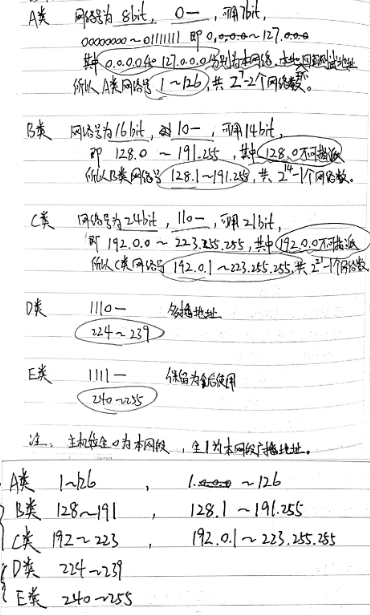 A类 网络号为8bit, 0—, 可用7bit,
00000000~01111111 即0.0.0.0~127.0.0.0
其中0.0.0.0和127.0.0.0分别为本网络、本地回环测试地址
所以A类网络号1~126, 共2⁷-2个网络数。
B类 网络号为16bit, 10—, 可用14bit,
即 128.0 ~ 191.255 , 其中128.0不指派
所以B类网络号128.1~191.255, 共2¹⁴-1个网络数。
C类 网络号为24bit, 110—, 可用21bit,
即 192.0.0 ~ 223.255.255, 其中192.0.0不指派
所以C类网络号 192.0.1 ~ 223.255.255, 共2²¹-1个网络数
D类 1110— 多播地址
224 ~ 239
E类 1111— 保留为今后使用
240~255
注、主机位全0为本网段 , 全1为本网段广播地址。
A类 1~126 , 1 ~ 126
B类 128~191 , 128.1 ~ 191.255
C类 192 ~ 223 , 192.0.1 ~ 223.255.255
D类 224 ~ 239
E类 240 ~ 255